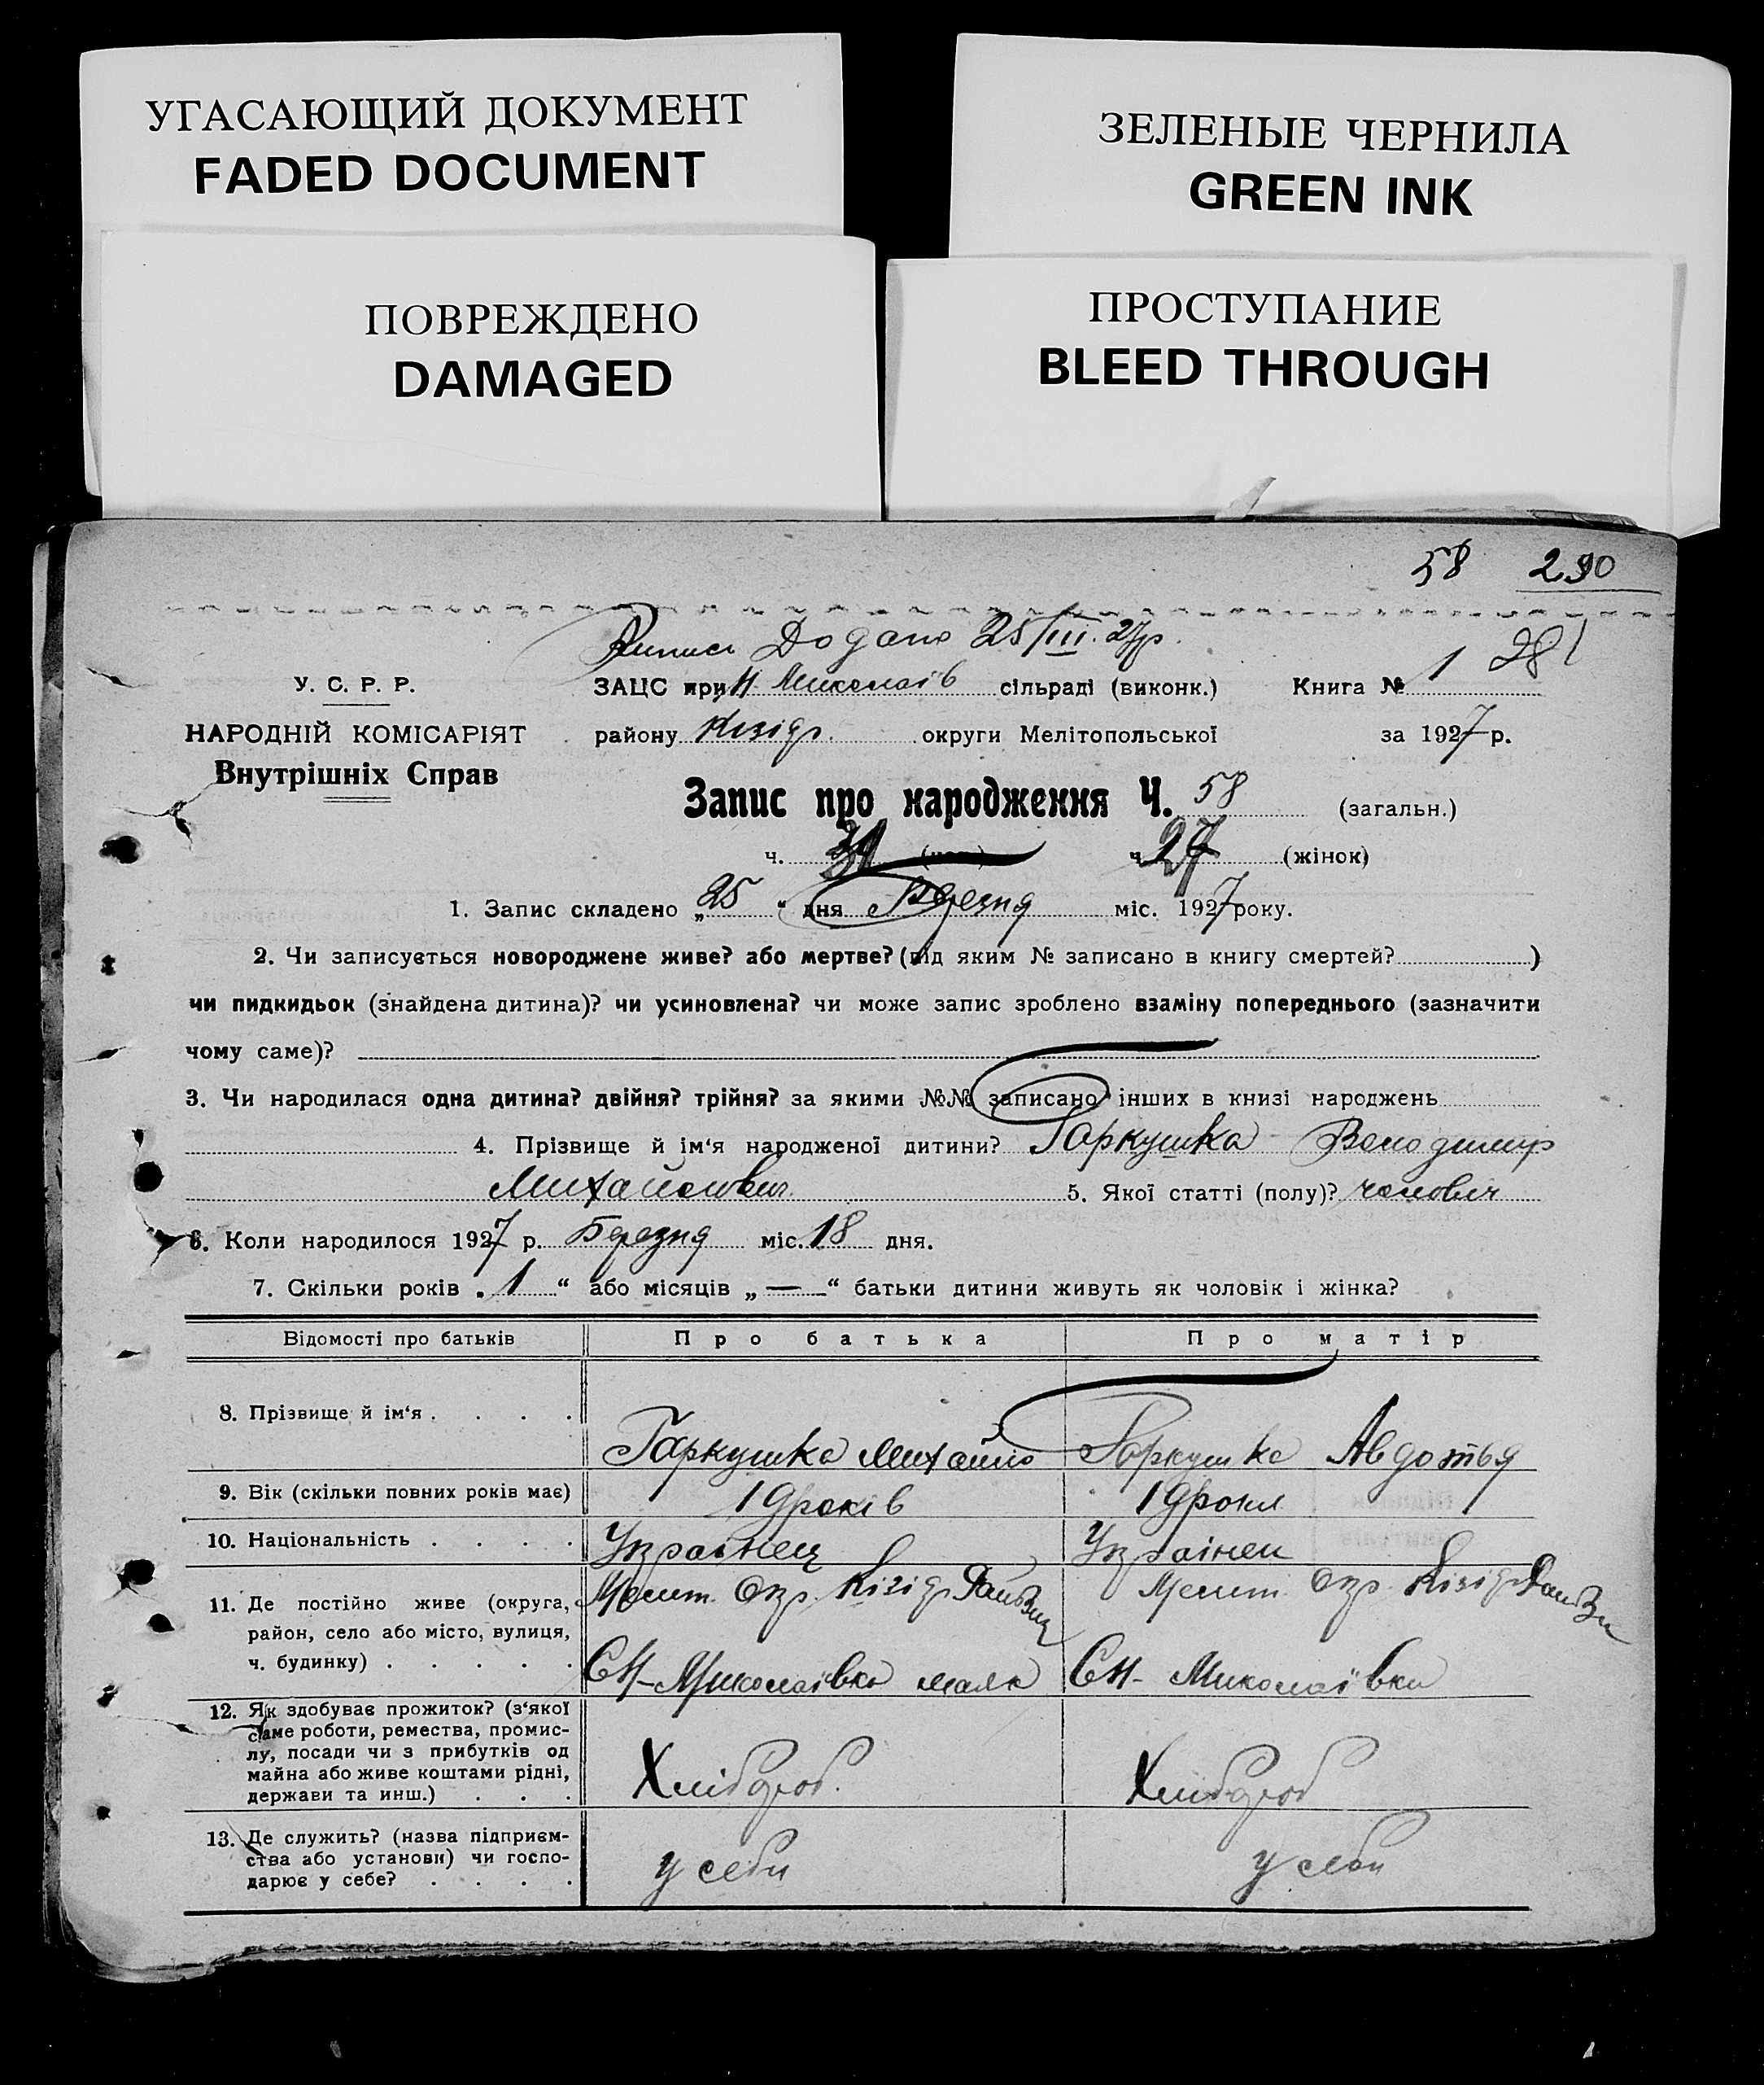 УГАСАЮЩИЙ ДОКУМЕНТ
FADED DOCUMENT
ЗЕЛЕНЫЕ ЧЕРНИЛА
GREEN INK
ПОВРЕЖДЕНО
DAMAGED
ПРОСТУПАНИЕ
BLEED THROUGH
58 290
Додано 25/III. 27р.
У. С. Р. Р. ЗАЦС при Н. Миколаїв сільраді (виконк.) Книга № 1 281
НАРОДНІЙ КОМІСАРІЯТ району Кизідр. округи Мелітопольської за 1927 р.
Внутрішніх Справ
Запис про народження Ч. 58 (загальн.)
ч. 31 ч. 27 (жінок)
1. Запис складено „25“ дня Березня міс. 1927 року.
2. Чи записується новороджене живе? або мертве? (під яким № записано в книгу смертей? )
чи пидкидьок (знайдена дитина)? чи усиновлена? чи може запис зроблено взаміну попереднього (зазначити
чому саме)?
3. Чи народилася одна дитина? двійня? трійня? за якими №№ записано інших в книзі народжень
4. Прізвище й ім‘я народженої дитини? Гаркушка Володимир
Михайлович 5. Якої статті (полу)? чолович
6. Коли народилося 1927 р. Березня міс. 18 дня.
7. Скільки років „1“ або місяців „—“ батьки дитини живуть як чоловік і жінка?
Відомості про батьків Про батька Про матір
8. Прізвище й ім‘я . . . . Гаркушка Михайло Гаркушка Авдотья
9. Вік (скільки повних років має) 19 років 19 рокив
10. Національність . . . . Українец Українец
11. Де постійно живе (округа, Мелит. Окр. Кізідр Мелит. Окр. Кізідр
район, село або місто, вулиця,
ч. будинку) . . . . . СН-Миколаївка СН- Миколаївка
12. Як здобуває прожиток? (з‘якої
саме роботи, ремества, промис-
лу, посади чи з прибутків од
майна або живе коштами рідні, Хлібороб. Хлібороб
держави та инш.) . . .
13. Де служить? (назва підприєм-
ства або установи) чи госпо- у себи у себи
дарює у себе? . . . .